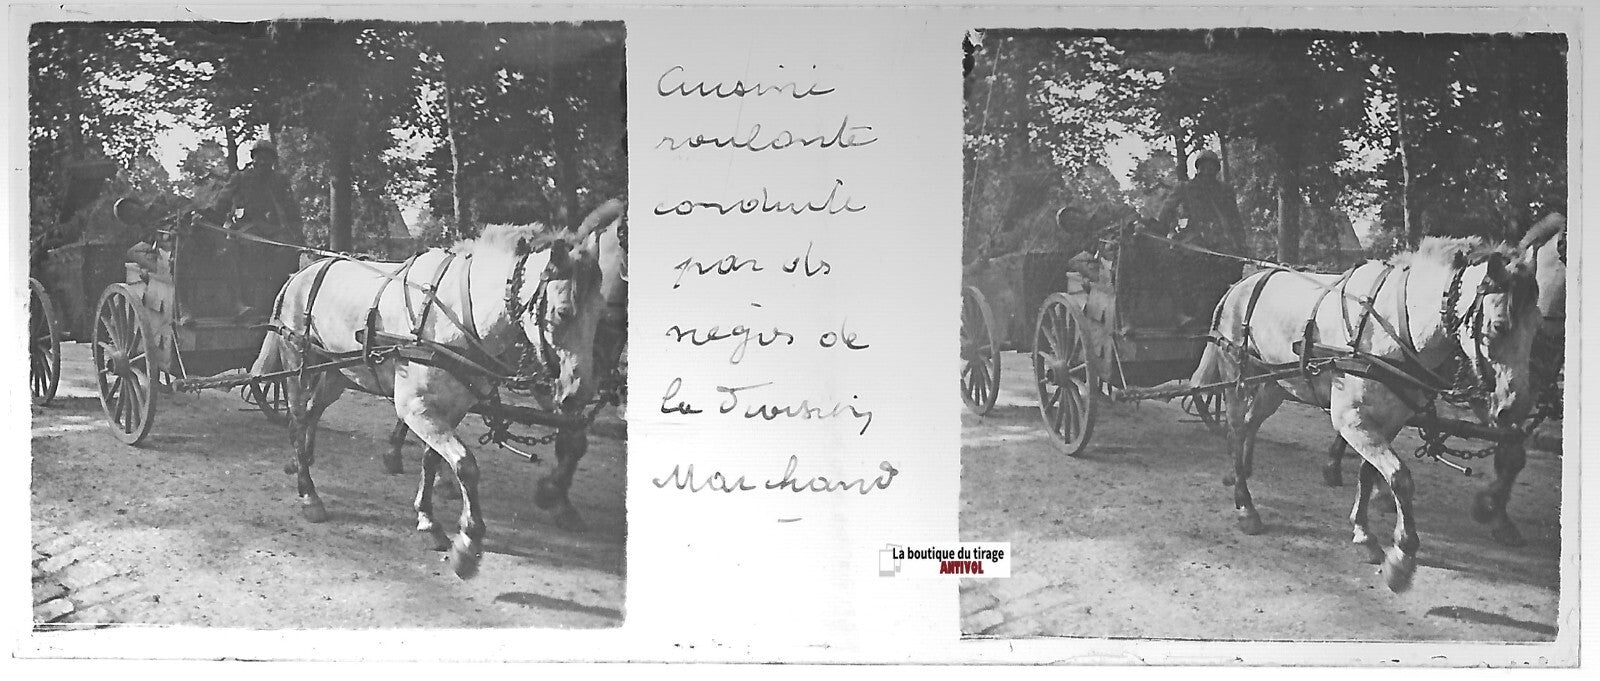 Cuisine
roulante
conduite
par ds
nègrs de
la Division
Marchand
La boutique du tirage
ANTIVOL